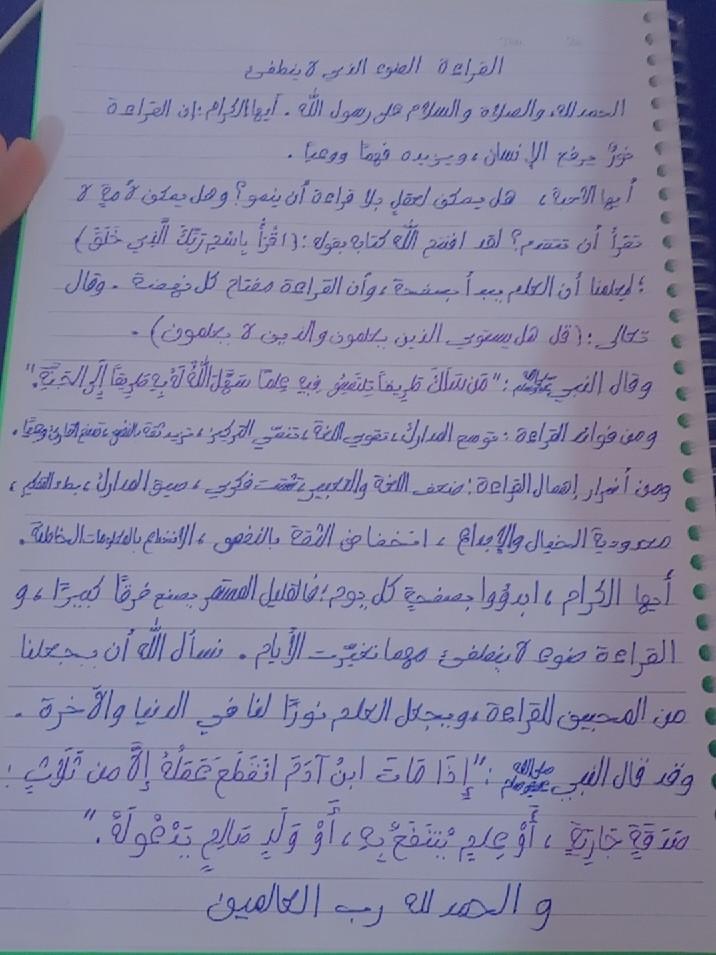 القراءة الضوء الذي لا ينطفئ
الحمد لله، والصلاة والسلام على رسول الله. أيها الكرام: إن القراءة
نورٌ يرفع الإنسان، ويزيده فهمًا ووعيًا.
أيها الأحبة، هل يمكن لعقلٍ بلا قراءة أن ينمو؟ وهل يمكن لأمةٍ لا
تقرأ أن تتقدم؟ لقد افتتح الله كتابه بقوله: (اقْرَأْ بِاسْمِ رَبِّكَ الَّذِي خَلَقَ)
؛ ليعلمنا أن العلم يبدأ بصفحة، وأن القراءة مفتاح كل نهضة. وقال
تعالى: (قل هل يستوي الذين يعلمون والذين لا يعلمون).
وقال النبي ﷺ: "مَن سَلَكَ طَرِيقاً يَلتَمِسُ فِيهِ عِلمًا سَهَّلَ اللهُ لَهُ بِهِ طَرِيقاً إِلَى الجَنَّةِ."
ومن فوائد القراءة: توسع المدارك، تقوي اللغة، تنمّي التركيز، تزيد ثقة بالنفس، تصنع قارئ وعيًا.
ومن أضرار إهمال القراءة: ضعف اللغة والتعبير، تشتت فكري، ضيق المدارك، بطء الفهم،
محدودية الخيال والإبداع، انخفاض الثقة بالنفس، الانخداع بالمعلومات الخاطئة.
أيها الكرام، ابدؤوا بصفحةٍ كل يوم؛ فالقليل المستمر يصنع فرقًا كبيرًا، و
القراءة ضوء لا ينطفئ مهما تغيّرت الأيام. نسأل الله أن يجعلنا
من المحبين للقراءة، ويجعل العلم نورًا لنا في الدنيا والآخرة.
وقد قال النبي ﷺ: "إِذَا مَاتَ ابنُ آدَمَ انْقَطَعَ عَمَلُهُ إِلَّا مِن ثَلَاثٍ:
صَدَقَةٍ جَارِيَةٍ، أَوْ عِلمٍ يُنْتَفَعُ بِهِ، أَوْ وَلَدٍ صَالِحٍ يَدْعُو لَهُ."
و الحمد لله رب العالمين